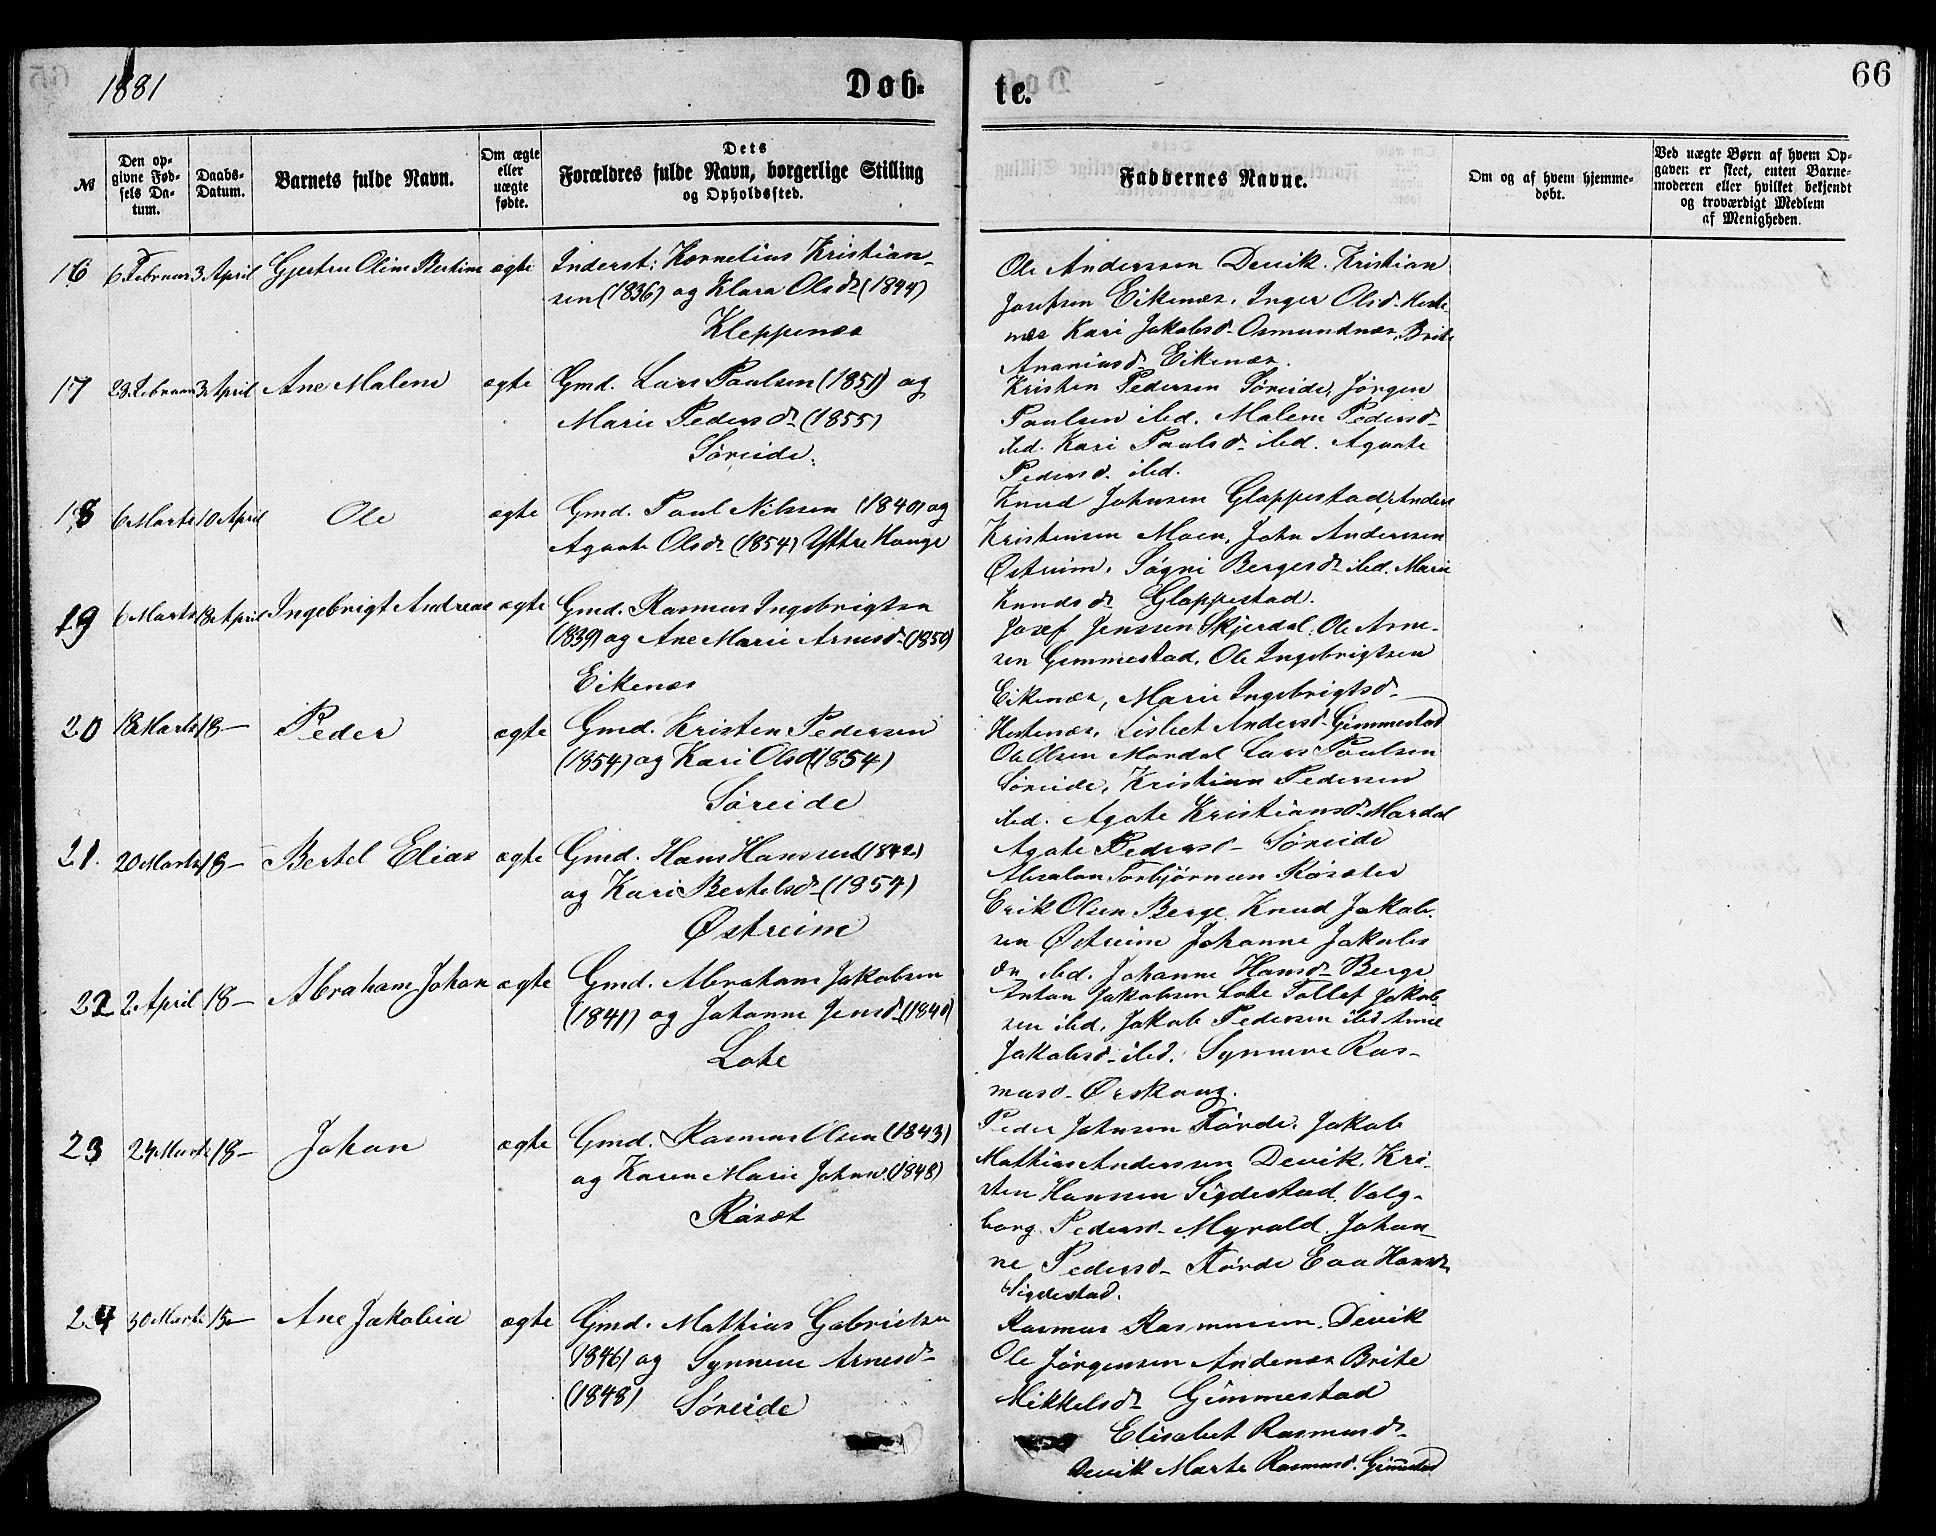 1881
Døb-
te.
66
№
Den op-
givne Fød-
sels Da-
tum.
Daabs-
Datum.
Barnets fulde Navn.
Om ægte
eller
uægte
fødte.
Dets
Forældres fulde Navn, borgerlige Stilling
og Opholdssted.
Faddernes Navne.
Om og af hvem hjemme-
døbt.
Ved uægte Børn af hvem Op-
gaven er skeet, enten Barne-
moderen eller hvilket bekjendt
og troværdigt Medlem
af Menigheden.
16 6 Februar 3 April Gjertru Oline Bertine ægte Inderst: Kornelius Kristian-
sen (1836) og Klara Olsd. (1844)
Kleppenæs
Ole Anderssen Devik. Kristian
Josefsen Eikenæs, Inger Olsd. Heste-
næs Kari Jakobsd. Osmundnæs, Brite
Ananiasd. Eikenæs.
17 28 Februar 3 April Ane Malene ægte Gmd. Lars Paulsen (1851) og
Marie Pedersd. (1855)
Søreide.
Kristen Pedersen Søreide, Jørgen
Paulsen ibd. Malene Pedersd.
ibd. Kari Paulsd. ibd. Agaate
Pedersd. ibd.
18 6 Marts 10 April Ole ægte Gmd. Paul Nilssen (1840) og
Agaate Olsd. (1854) Ytre Hauge
Knud Johnsen Glappestad, Anders
Kristensen Moen, John Anderssen
Østreim, Søgni Bergesd. ibd. Marie
Knudsd. Glappestad.
19 6 Marts 18 April Ingebrigt Andreas ægte Gmd. Rasmus Ingebrigtsen
(1839) og Ane Marie Arnesd. (1850)
Eikenæs
Josef Jenssen Skjerdal, Ole Arne-
sen Gimmestad, Ole Ingebrigtsen
Eikenæs, Marie Ingebrigtsd.
Hestenæs, Lisbet Andersd. Gimmestad
20 18 Marts 18- Peder ægte Gmd. Kristen Pedersen
(1854) og Kari Olsd. (1854)
Søreide
Ole Olsen Mardal Lars Paulsen
Søreide, Kristian Pedersen
ibd. Agate Kristiansd. Mardal
Agate Pedersd. Søreide
21. 20 Marts 18- Bertel Elias ægte Gmd. Hans Hanssen (1842)
og Kari Bertelsd. (1854)
Østreim
Absalon Torbjørnsen Råsæter
Erik Olsen Berge. Knud Jakob-
sen Østreim Johanne Jakobs
dr. ibd. Johanne Hansd. Berge
22 2 April 18- Abraham Johan ægte Gmd. Abraham Jakobsen
(1841) og Johanne Jensd. (1840)
Lote
Anton Jakobsen Lote Tollef Jakob-
sen ibd. Jakob Pedersen ibd. Anne
Jakobsd. ibd. Synneve Ras-
musd. Ørskaug.
23 24 Marts 18- Johan ægte Gmd. Rasmus Olsen (1843)
og Karen Marie Johnsd. (1848)
Råsæt
Peder Johnsen Førde. Jakob
Mathias Anderssen Devik. Kri-
sten Hanssen Sigdestad. Valg-
borg Pedersd. Myvold. Johan-
ne Pedersd. Førde Eva Hansd.
Sigdestad.
24 30 Marts 15- Ane Jakobia ægte Gmd. Mathias Gabrielsen
(1846) og Synneve Arnesd.
(1848) Søreide
Rasmus Rasmussen Devik
Ole Jørgensen Andenæs Brite
Mikkelsd. Gimmestad
Elisabet Rasmusd.
Devik Marte Rasmusd. Gimmestad